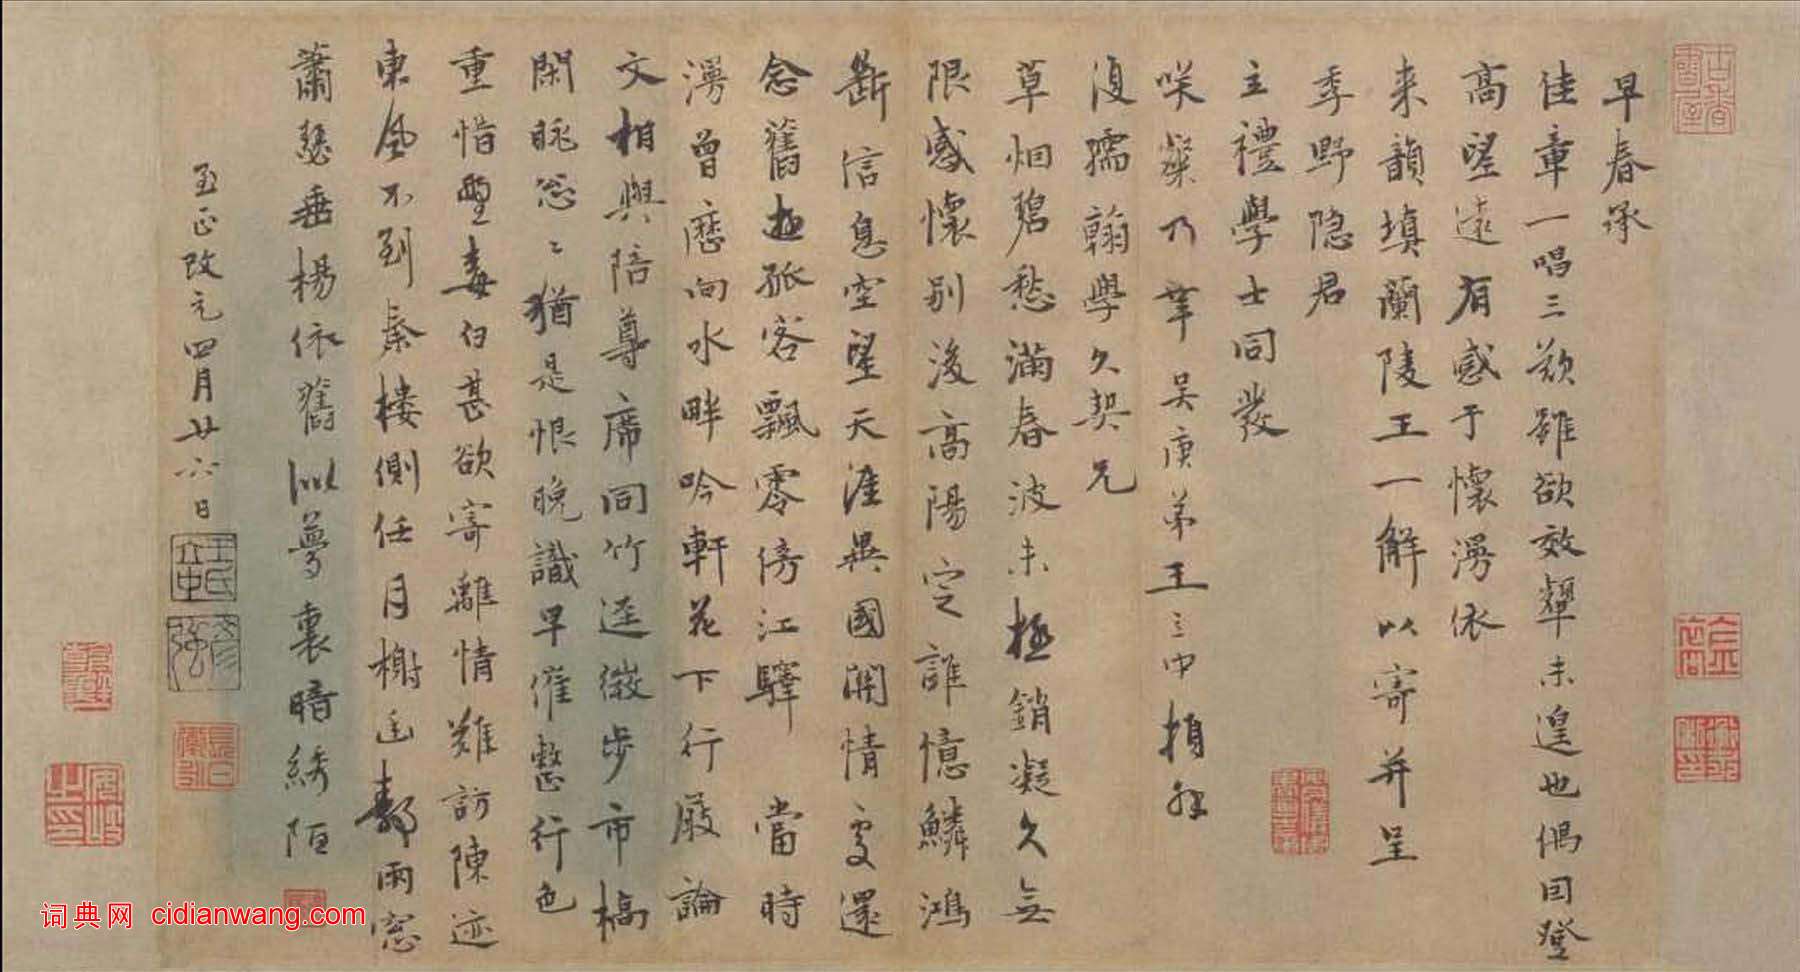 早春承
佳章一唱三歎雖欲效顰未遑也偶因登
高望遠有感于懷漫依
来韻填蘭陵王一解以寄并呈
季野隐君
主禮學士同發
咲粲乃幸吴庚弟王立中頓拜
復孺翰學久契兄
草烟碧愁滿春波未極銷凝久無
限感懷别後高陽定誰憶鱗鴻
斷信息空望天涯異國関情處還
念舊遊孤客飄零傍江驛 當時
漫曾歷向水畔吟軒花下行廚論
文相與陪尊席同竹逕微步市橋
閑眺忩〻猶是恨晚識早催整行色
重惜鬢毒白甚欲寄離情難訪陳迹
東風不到秦樓側任月榭
雨窓
蕭瑟垂楊依舊似夢裏暗綉陌
至正改元四月廿六日
王氏
彦強
词典网 cidianwang.com